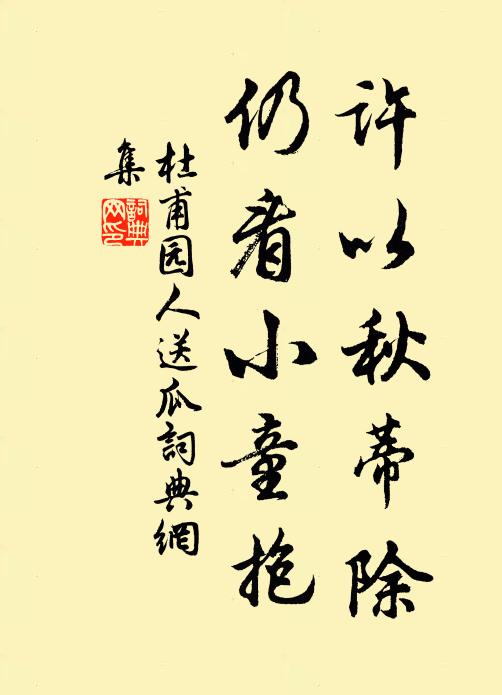 许以秋蒂除
仍看小童抱
杜甫园人送瓜詞典網
集
詞典
网印